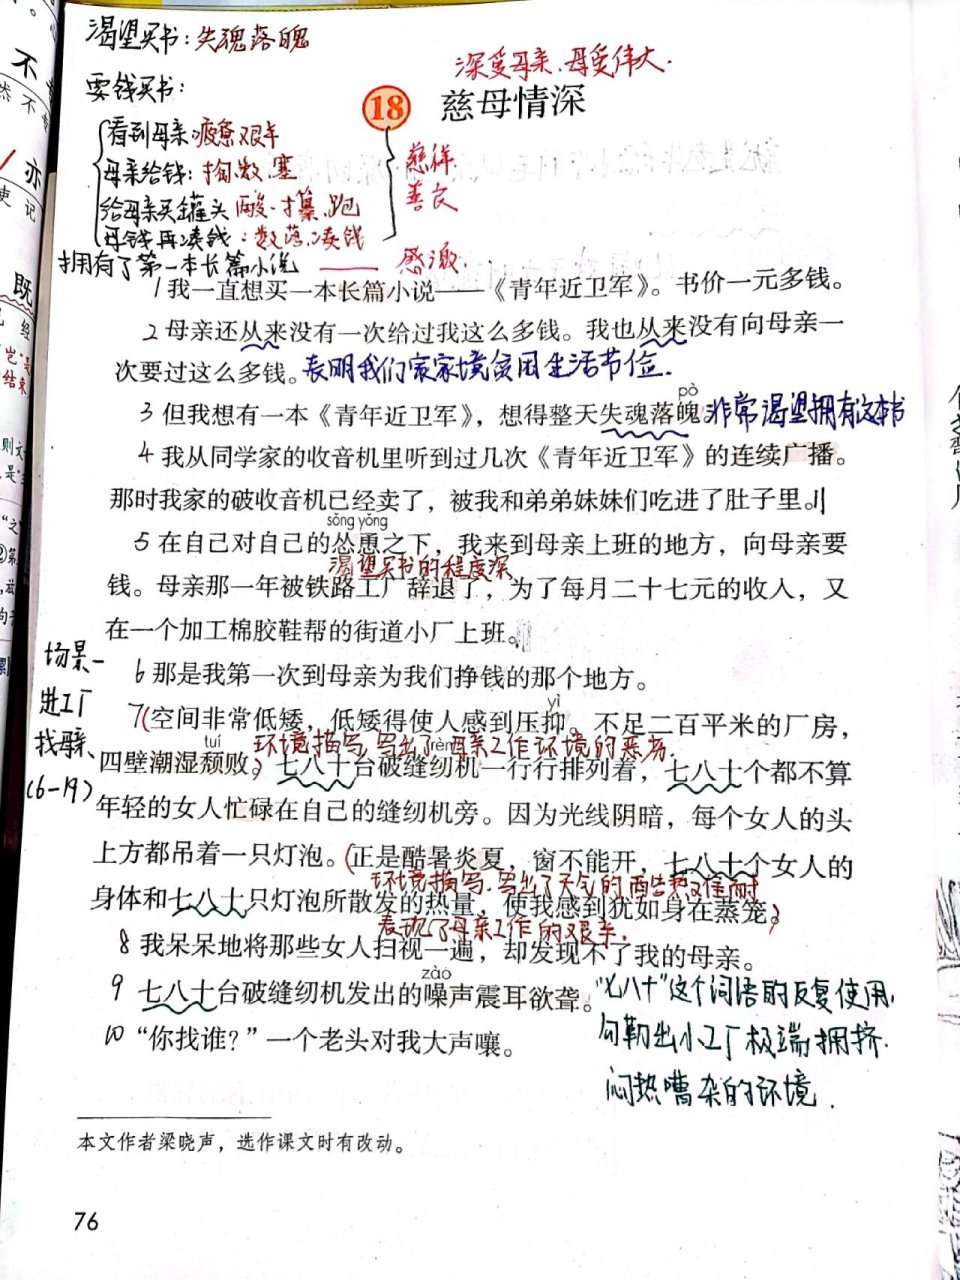 渴望买书:失魂落魄
深爱母亲、母爱伟大.
要钱买书:
18 慈母情深
看到母亲:疲惫艰辛
母亲给钱:掏.数.塞
慈祥
善良
给母亲买罐头 酸.攥.跑
母钱再凑钱:数落.凑钱
拥有了第一本长篇小说 —— 感激.
1我一直想买一本长篇小说——《青年近卫军》。书价一元多钱。
2母亲还从来没有一次给过我这么多钱。我也从来没有向母亲一
次要过这么多钱。表明我们家家境贫困生活节俭.
pò
3但我想有一本《青年近卫军》，想得整天失魂落魄 非常渴望拥有这本书
4我从同学家的收音机里听到过几次《青年近卫军》的连续广播。
那时我家的破收音机已经卖了，被我和弟弟妹妹们吃进了肚子里。
sǒng yǒng
5在自己对自己的怂恿之下，我来到母亲上班的地方，向母亲要
渴望买书的程度深
钱。母亲那一年被铁路工厂辞退了，为了每月二十七元的收入，又
在一个加工棉胶鞋帮的街道小厂上班。
场景一
进工厂
找母亲、
(6-19)
6那是我第一次到母亲为我们挣钱的那个地方。
yì
7(空间非常低矮，低矮得使人感到压抑。不足二百平米的厂房，
tuí
环境描写，写出了母亲工作环境的恶劣.
rèn
四壁潮湿颓败。七八十台破缝纫机一行行排列着，七八十个都不算
年轻的女人忙碌在自己的缝纫机旁。因为光线阴暗，每个女人的头
上方都吊着一只灯泡。(正是酷暑炎夏，窗不能开，七八十个女人的
环境描写.写出了天气的
身体和七八十只灯泡所散发的热量，使我感到犹如身在蒸笼。
表现了母亲工作的艰辛.
8我呆呆地将那些女人扫视一遍，却发现不了我的母亲。
zào
9七八十台破缝纫机发出的噪声震耳欲聋。
"七八十"这个词语的反复使用,
勾勒出小工厂极端拥挤.
闷热嘈杂的环境.
10“你找谁？”一个老头对我大声嚷。
本文作者梁晓声，选作课文时有改动。
76